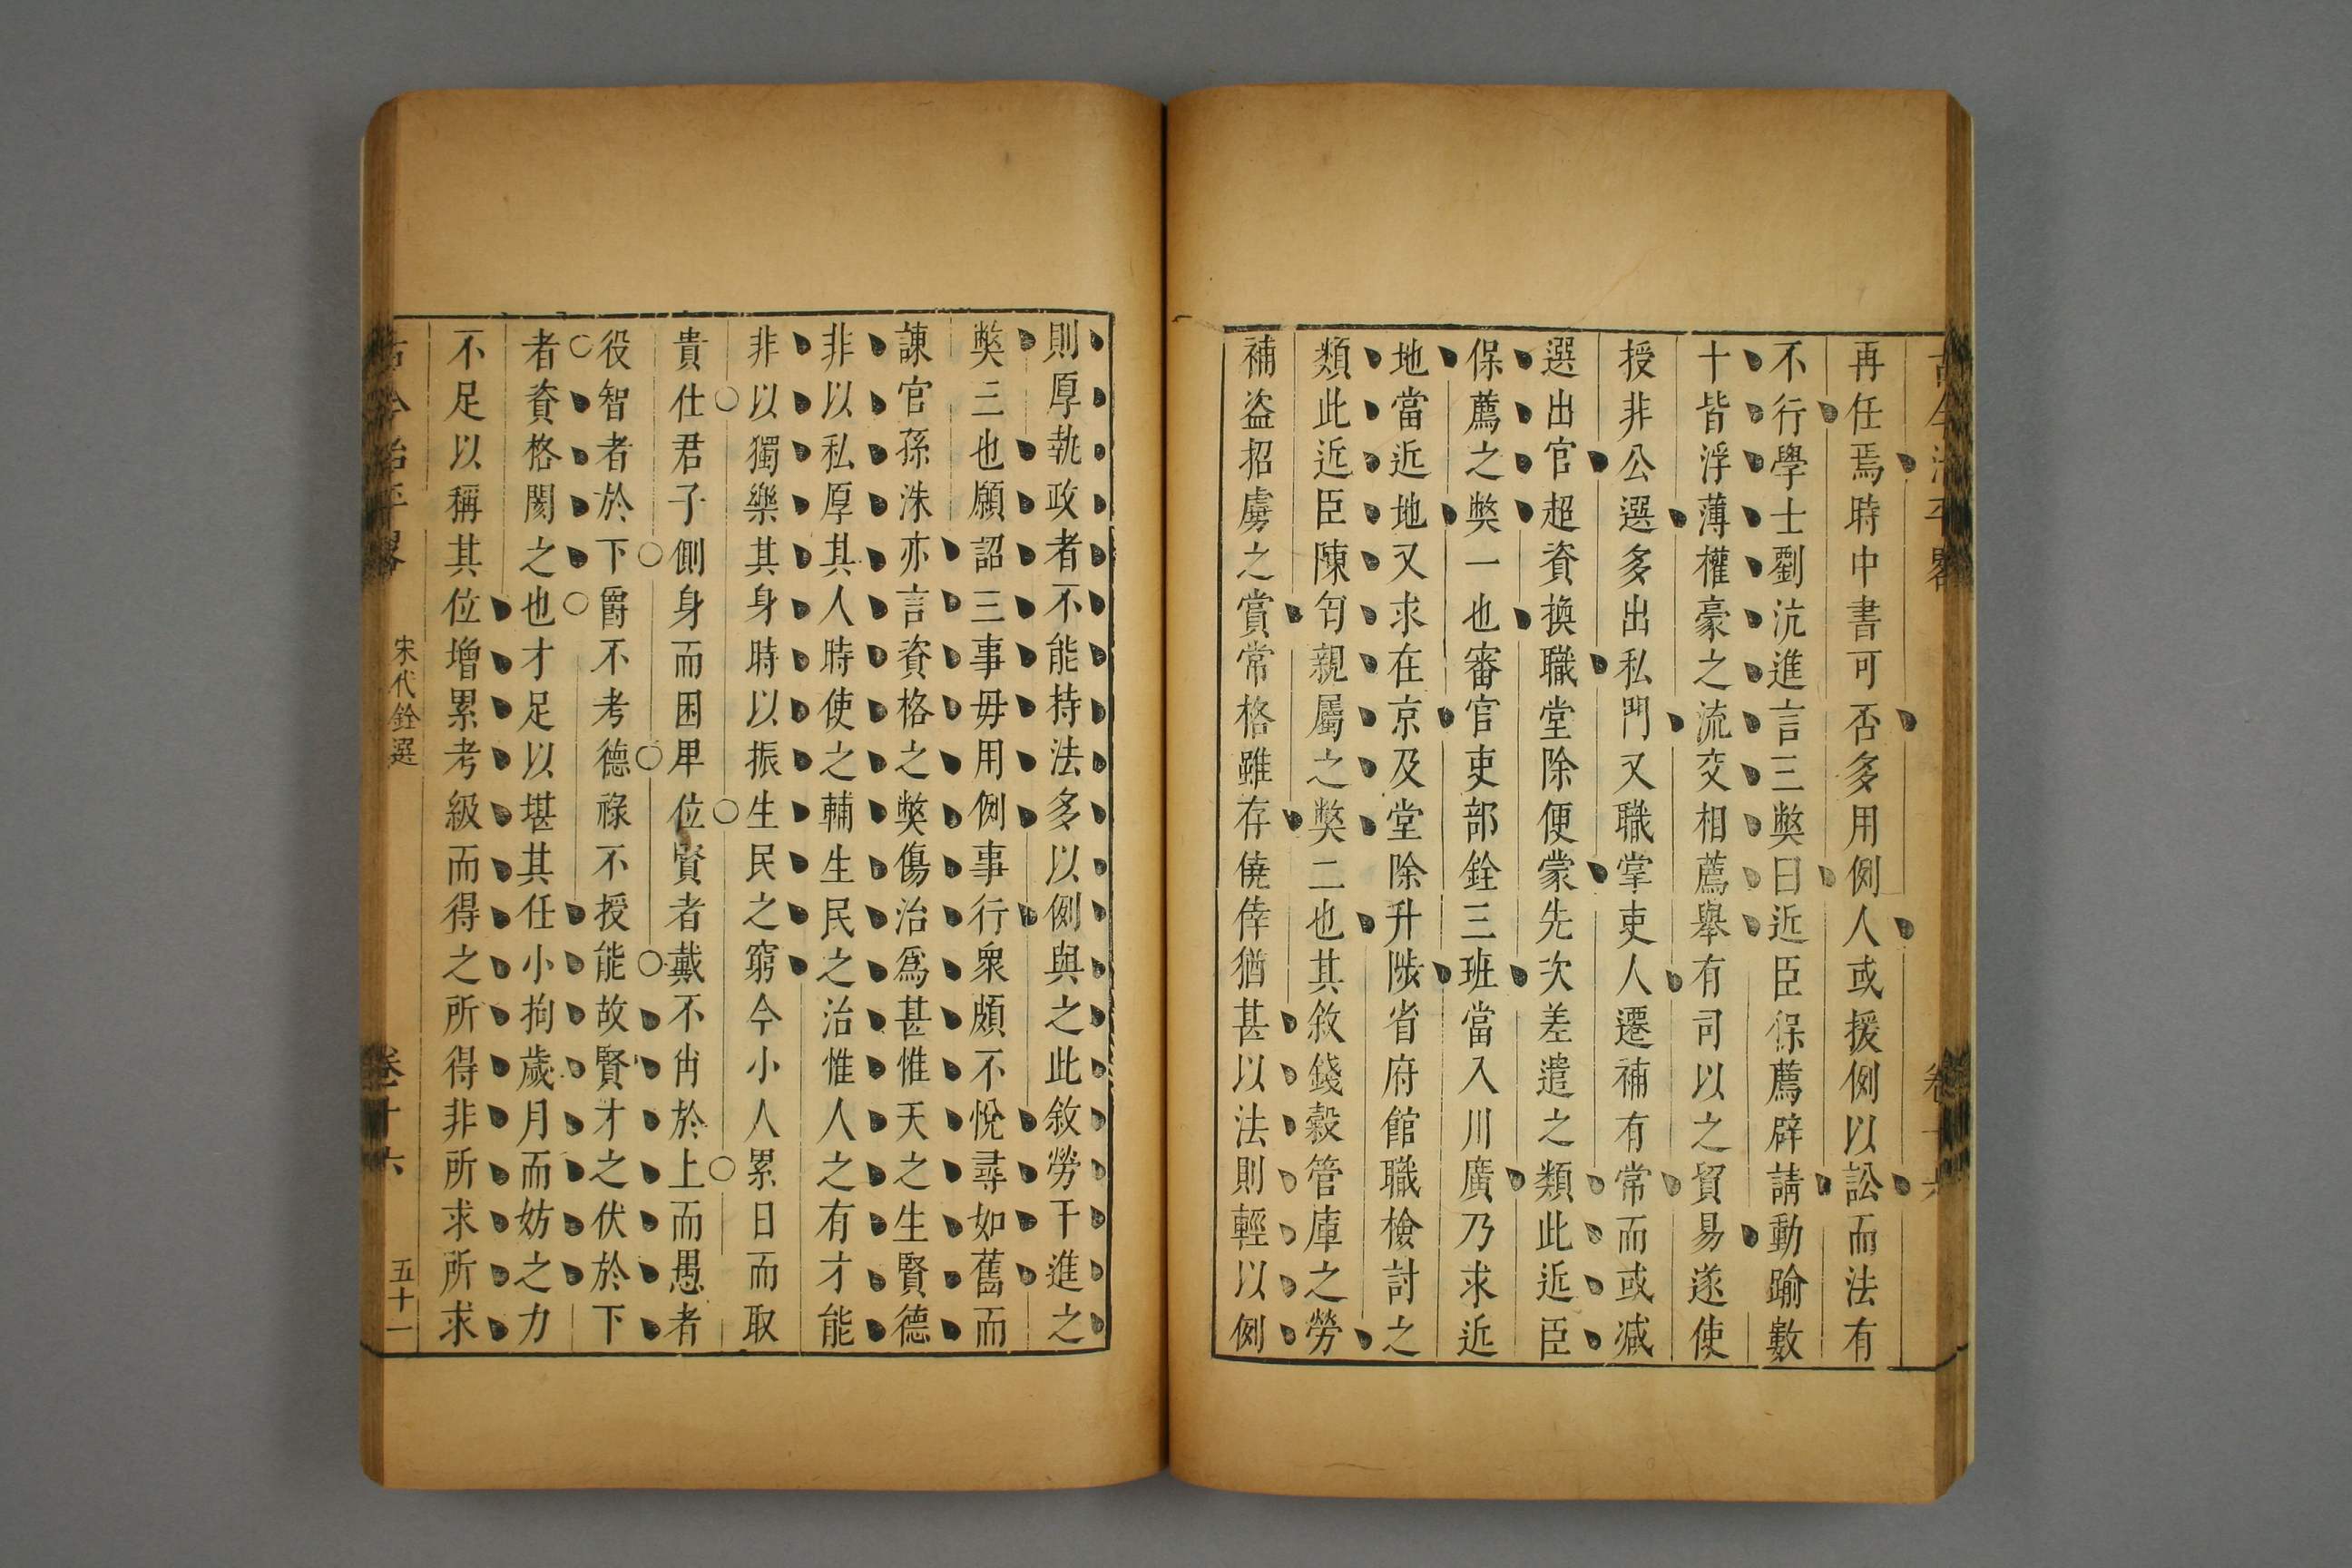 再任焉時中書可否多用例人或援例以訟而法有
不行學士劉沆進言三弊曰近臣保薦辟請動踰數
十皆浮薄權豪之流交相薦舉有司以之貿易遂使
授非公選多出私門又職掌吏人遷補有常而或減
選出官超資換職堂除便蒙先次差遣之類此近臣
保薦之弊一也審官吏部銓三班當入川廣乃求近
地當近地又求在京及堂除升陟省府館職檢討之
類此近臣陳匄親屬之弊二也其敘錢穀管庫之勞
補盗招虜之賞常格雖存僥倖猶甚以法則輕以例
則厚執政者不能持法多以例與之此敘勞干進之
弊三也願詔三事毋用例事行衆頗不悅尋如舊而
諫官孫洙亦言資格之弊傷治爲甚惟天之生賢德
非以私厚其人時使之輔生民之治惟人之有才能
非以獨樂其身時以振生民之窮今小人累日而取
貴仕君子側身而困卑位賢者戴不肖於上而愚者
役智者於下爵不考德祿不授能故賢才之伏於下
者資格閡之也才足以堪其任小拘歲月而妨之力
不足以稱其位增累考級而得之所得非所求所求
古今治平畧 宋代銓選 卷十六 五十一